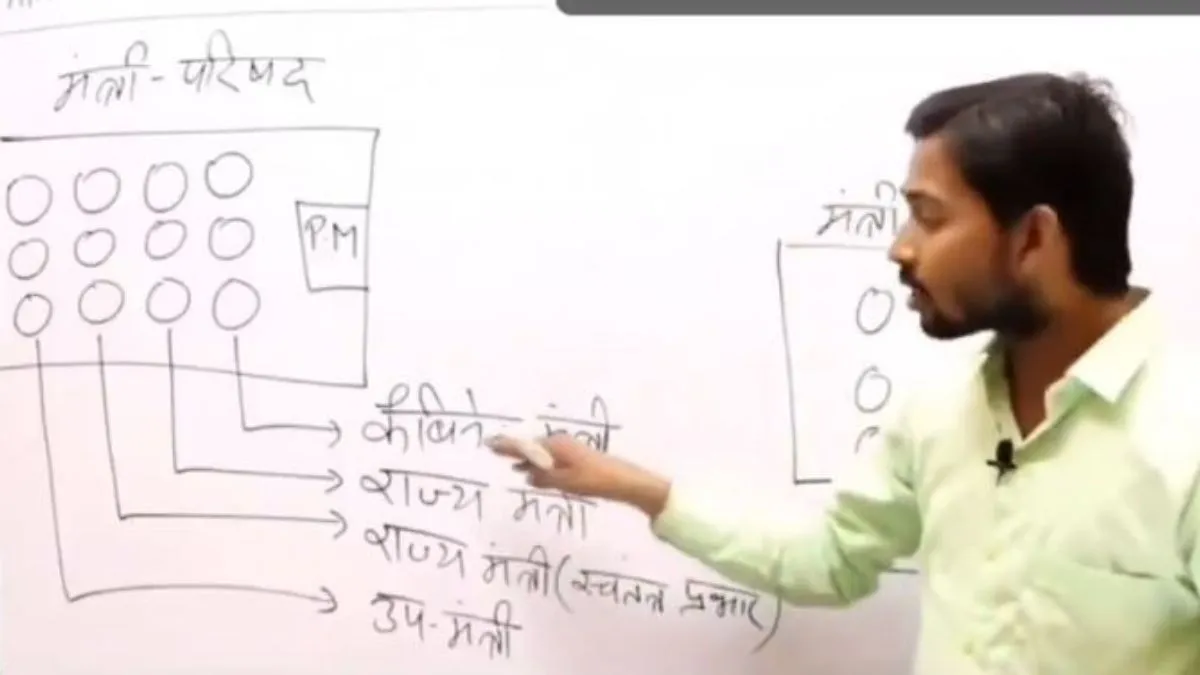 मंत्री-परिषद
P.M
मंत्री
कैबिनेट मंत्री
राज्य मंत्री
राज्य मंत्री (स्वतंत्र प्रभार)
उप-मंत्री